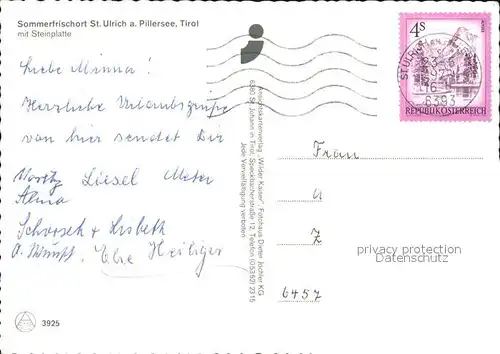 Sommerfrischort St. Ulrich a. Pillersee, Tirol
mit Steinplatte
Liebe Minna!
Herzliche Urlaubsgrüße
von hier sendet Dir
Moritz Liesel Meter
Alma
Schorsch + Lisbeth
Elie Heiliger
3925
Postkartenverlag "Wilder Kaiser" Fotohaus Dieter Jöchler KG
6380 St. Johann in Tirol, Speckbacherstraße 12, Telefon (05352) 2315
Jede Vervielfältigung verboten
4s
REPUBLIK ÖSTERREICH
6393
Frau
A
Z
6457
privacy protection
Datenschutz